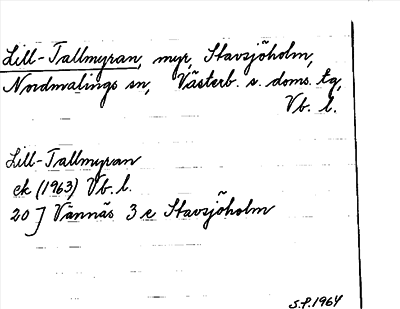 Lill-Tallmyran, myr, Stavsjöholm,
Nordmalings sn, Västerb. s. doms. tg,
Vb. l.
Lill-Tallmyran
ek (1963) Vb. l.
20] Vännäs 3 e Stavsjöholm
S.P. 1964